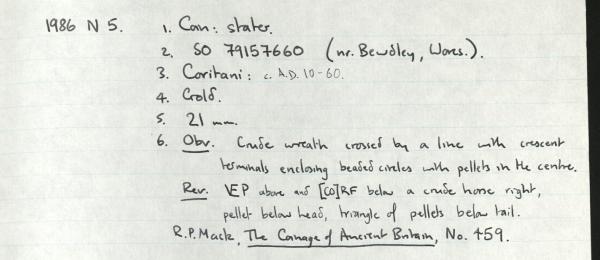 1986 N 5. 1. Coin: stater.
2. SO 79157660 (nr. Bewdley, Worcs.).
3. Coritani: c. A.D. 10-60.
4. Gold.
5. 21 mm.
6. Obv. Crude wreath crossed by a line with crescent
terminals enclosing beaded circles with pellets in the centre.
Rev. VEP above and [CO]RF below a crude horse right,
pellet below head, triangle of pellets below tail.
R.P. Mack, The Coinage of Ancient Britain, No. 459.